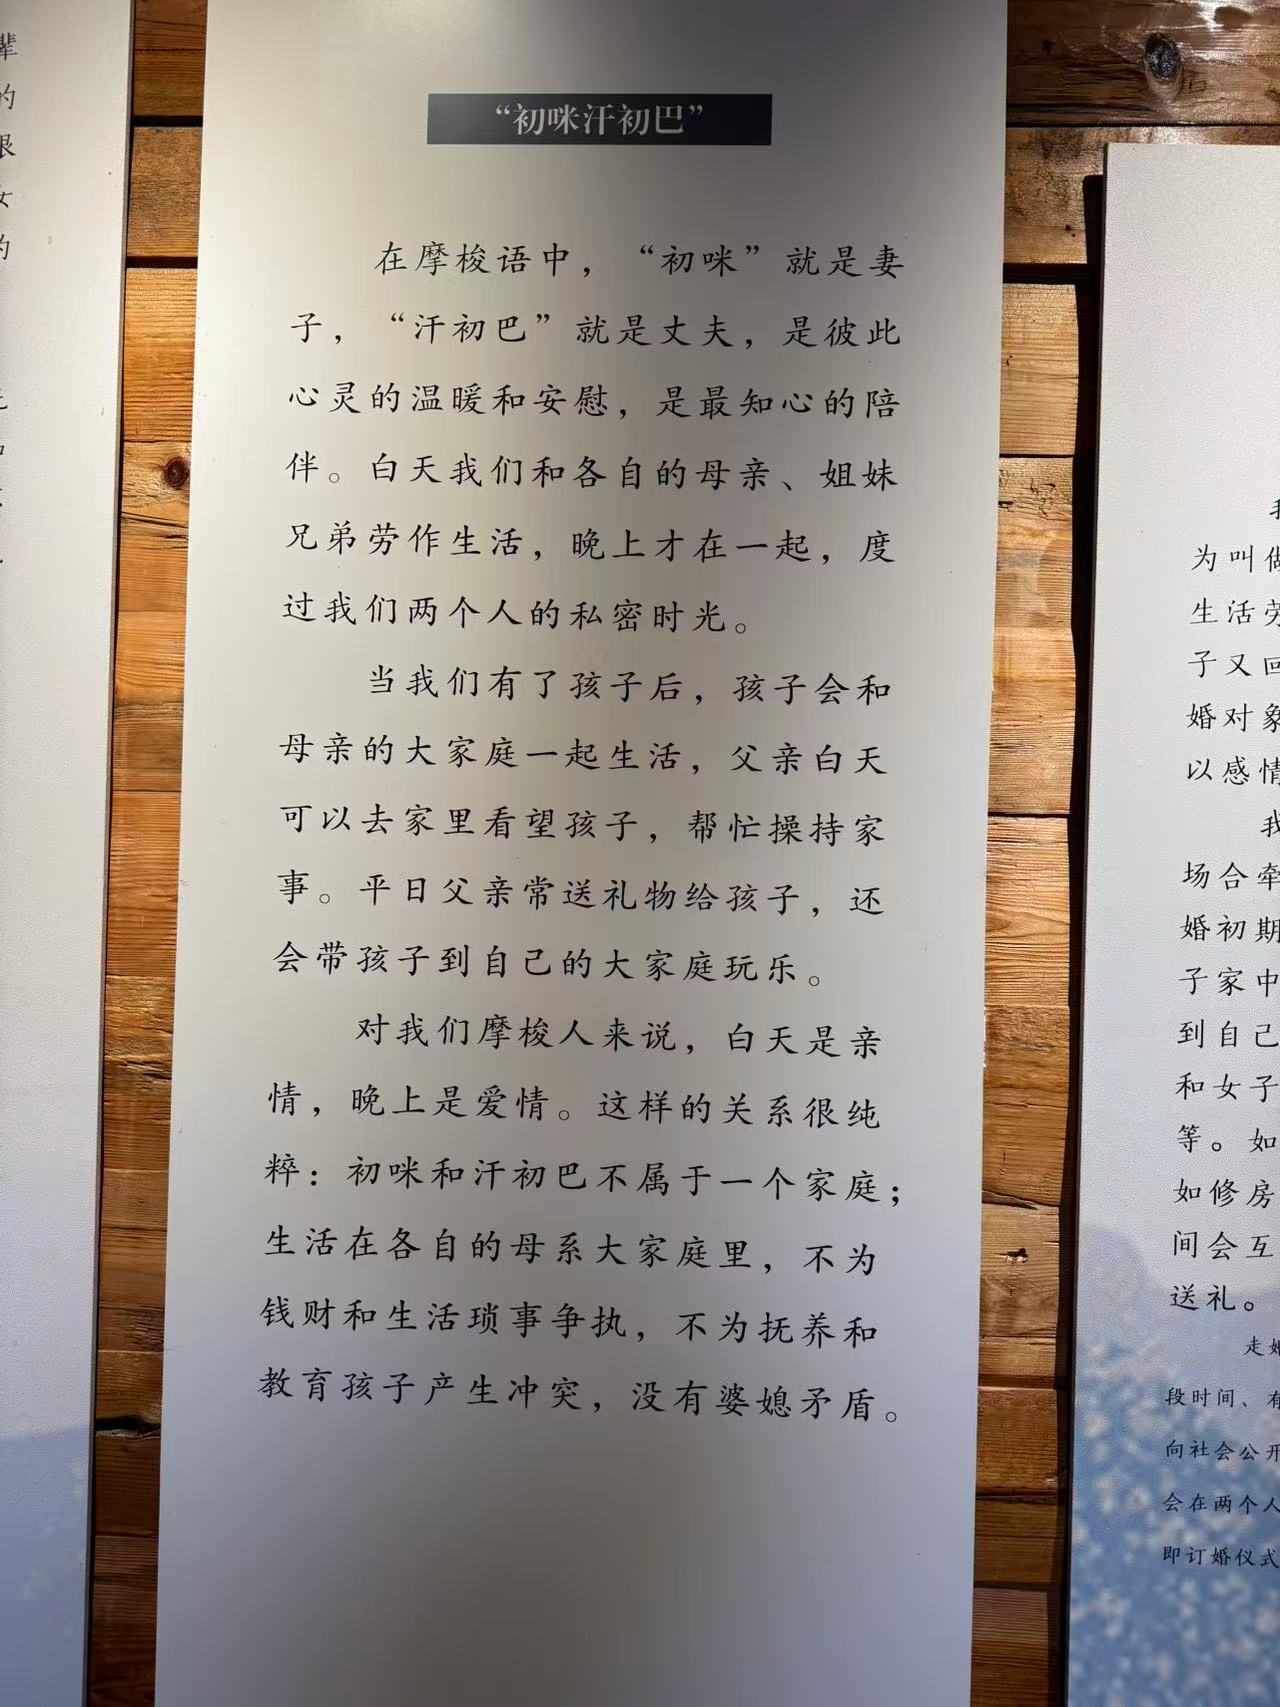 辈
的
艮
女
的
“初咪汗初巴”
在摩梭语中，“初咪”就是妻
子，“汗初巴”就是丈夫，是彼此
心灵的温暖和安慰，是最知心的陪
伴。白天我们和各自的母亲、姐妹
兄弟劳作生活，晚上才在一起，度
过我们两个人的私密时光。
当我们有了孩子后，孩子会和
母亲的大家庭一起生活，父亲白天
可以去家里看望孩子，帮忙操持家
事。平日父亲常送礼物给孩子，还
会带孩子到自己的大家庭玩乐。
对我们摩梭人来说，白天是亲
情，晚上是爱情。这样的关系很纯
粹：初咪和汗初巴不属于一个家庭；
生活在各自的母系大家庭里，不为
钱财和生活琐事争执，不为抚养和
教育孩子产生冲突，没有婆媳矛盾。
为叫做
生活劳
子又回
婚对象
以感情
我
场合牵
婚初期
子家中
到自己
和女子
等。如
如修房
间会互
送礼。
走婚
段时间、有
向社会公开
会在两个人
即订婚仪式